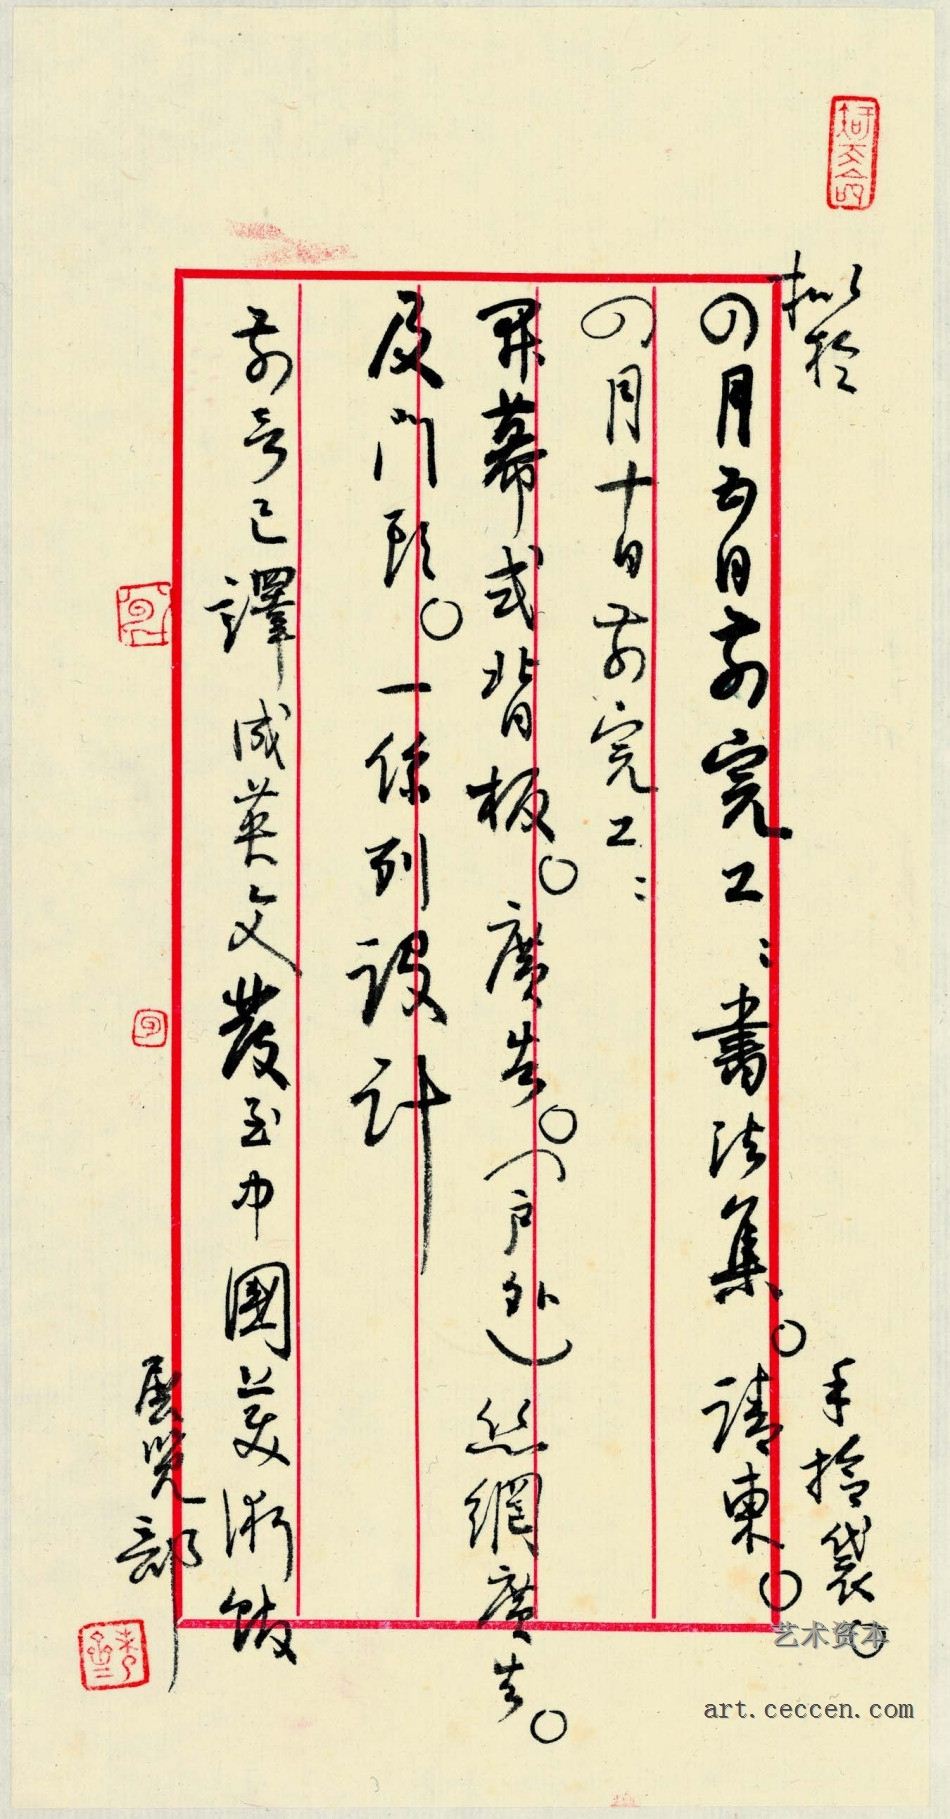 拟於
四月五日前完工：書法集。請柬。
手拾袋。
四月十日前完工：
開幕式背板。廣告。（户外）丝網廣告。
及門頭。一係列設計
前言已譯成英文發至中國美術館
展览部
艺术资本
art.ceccen.com